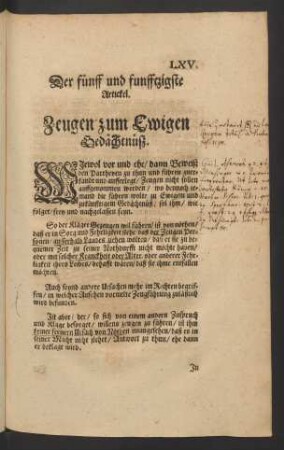 LXV.
Der fünff und funfftzigste
Artickel.
Zeugen zum Ewigen
Gedächtnüß.
Wiewol vor und ehe / dann Beweiß
den Partheyen zu thun und führen zuer-
kandt und aufferlegt / Zeugen nicht sollen
auffgenommen werden / wo dennoch je-
mand die führen wolte zu Ewigen und
zukünfftigen Gedächtnüß / sol ihm / wie
folget / frey und nachgelassen seyn.
So der Kläger Gezeugen wil führen / ist von nöthen /
daß er in Sorg und Fehrligkeit stehe / daß die Zeugen Per-
sonen / ausserhalb Landes ziehen wolten / daß er sie zu be-
quemer Zeit zu seiner Nothdurfft nicht möchte haben /
oder mit solcher Kranckheit oder Alter / oder anderer Fehr-
ligkeit ihres Lebens / behafft wären / daß sie ihme entfallen
möchten.
Auch seynd andere Ursachen mehr im Rechten begrif-
fen / in welcher Ansehen vormelte Zeugführung zuläßlich
wird befunden.
Ist aber / der / so sich von einen andern Zuspruch
und Klage besorget / willens zeugen zu führen / ist ihm
keiner fernern Ursach von Nöthen / angesehen / daß er in
seiner Macht nicht stehet / Antwort zu thun / ehe dann
er beklagt wird.
In